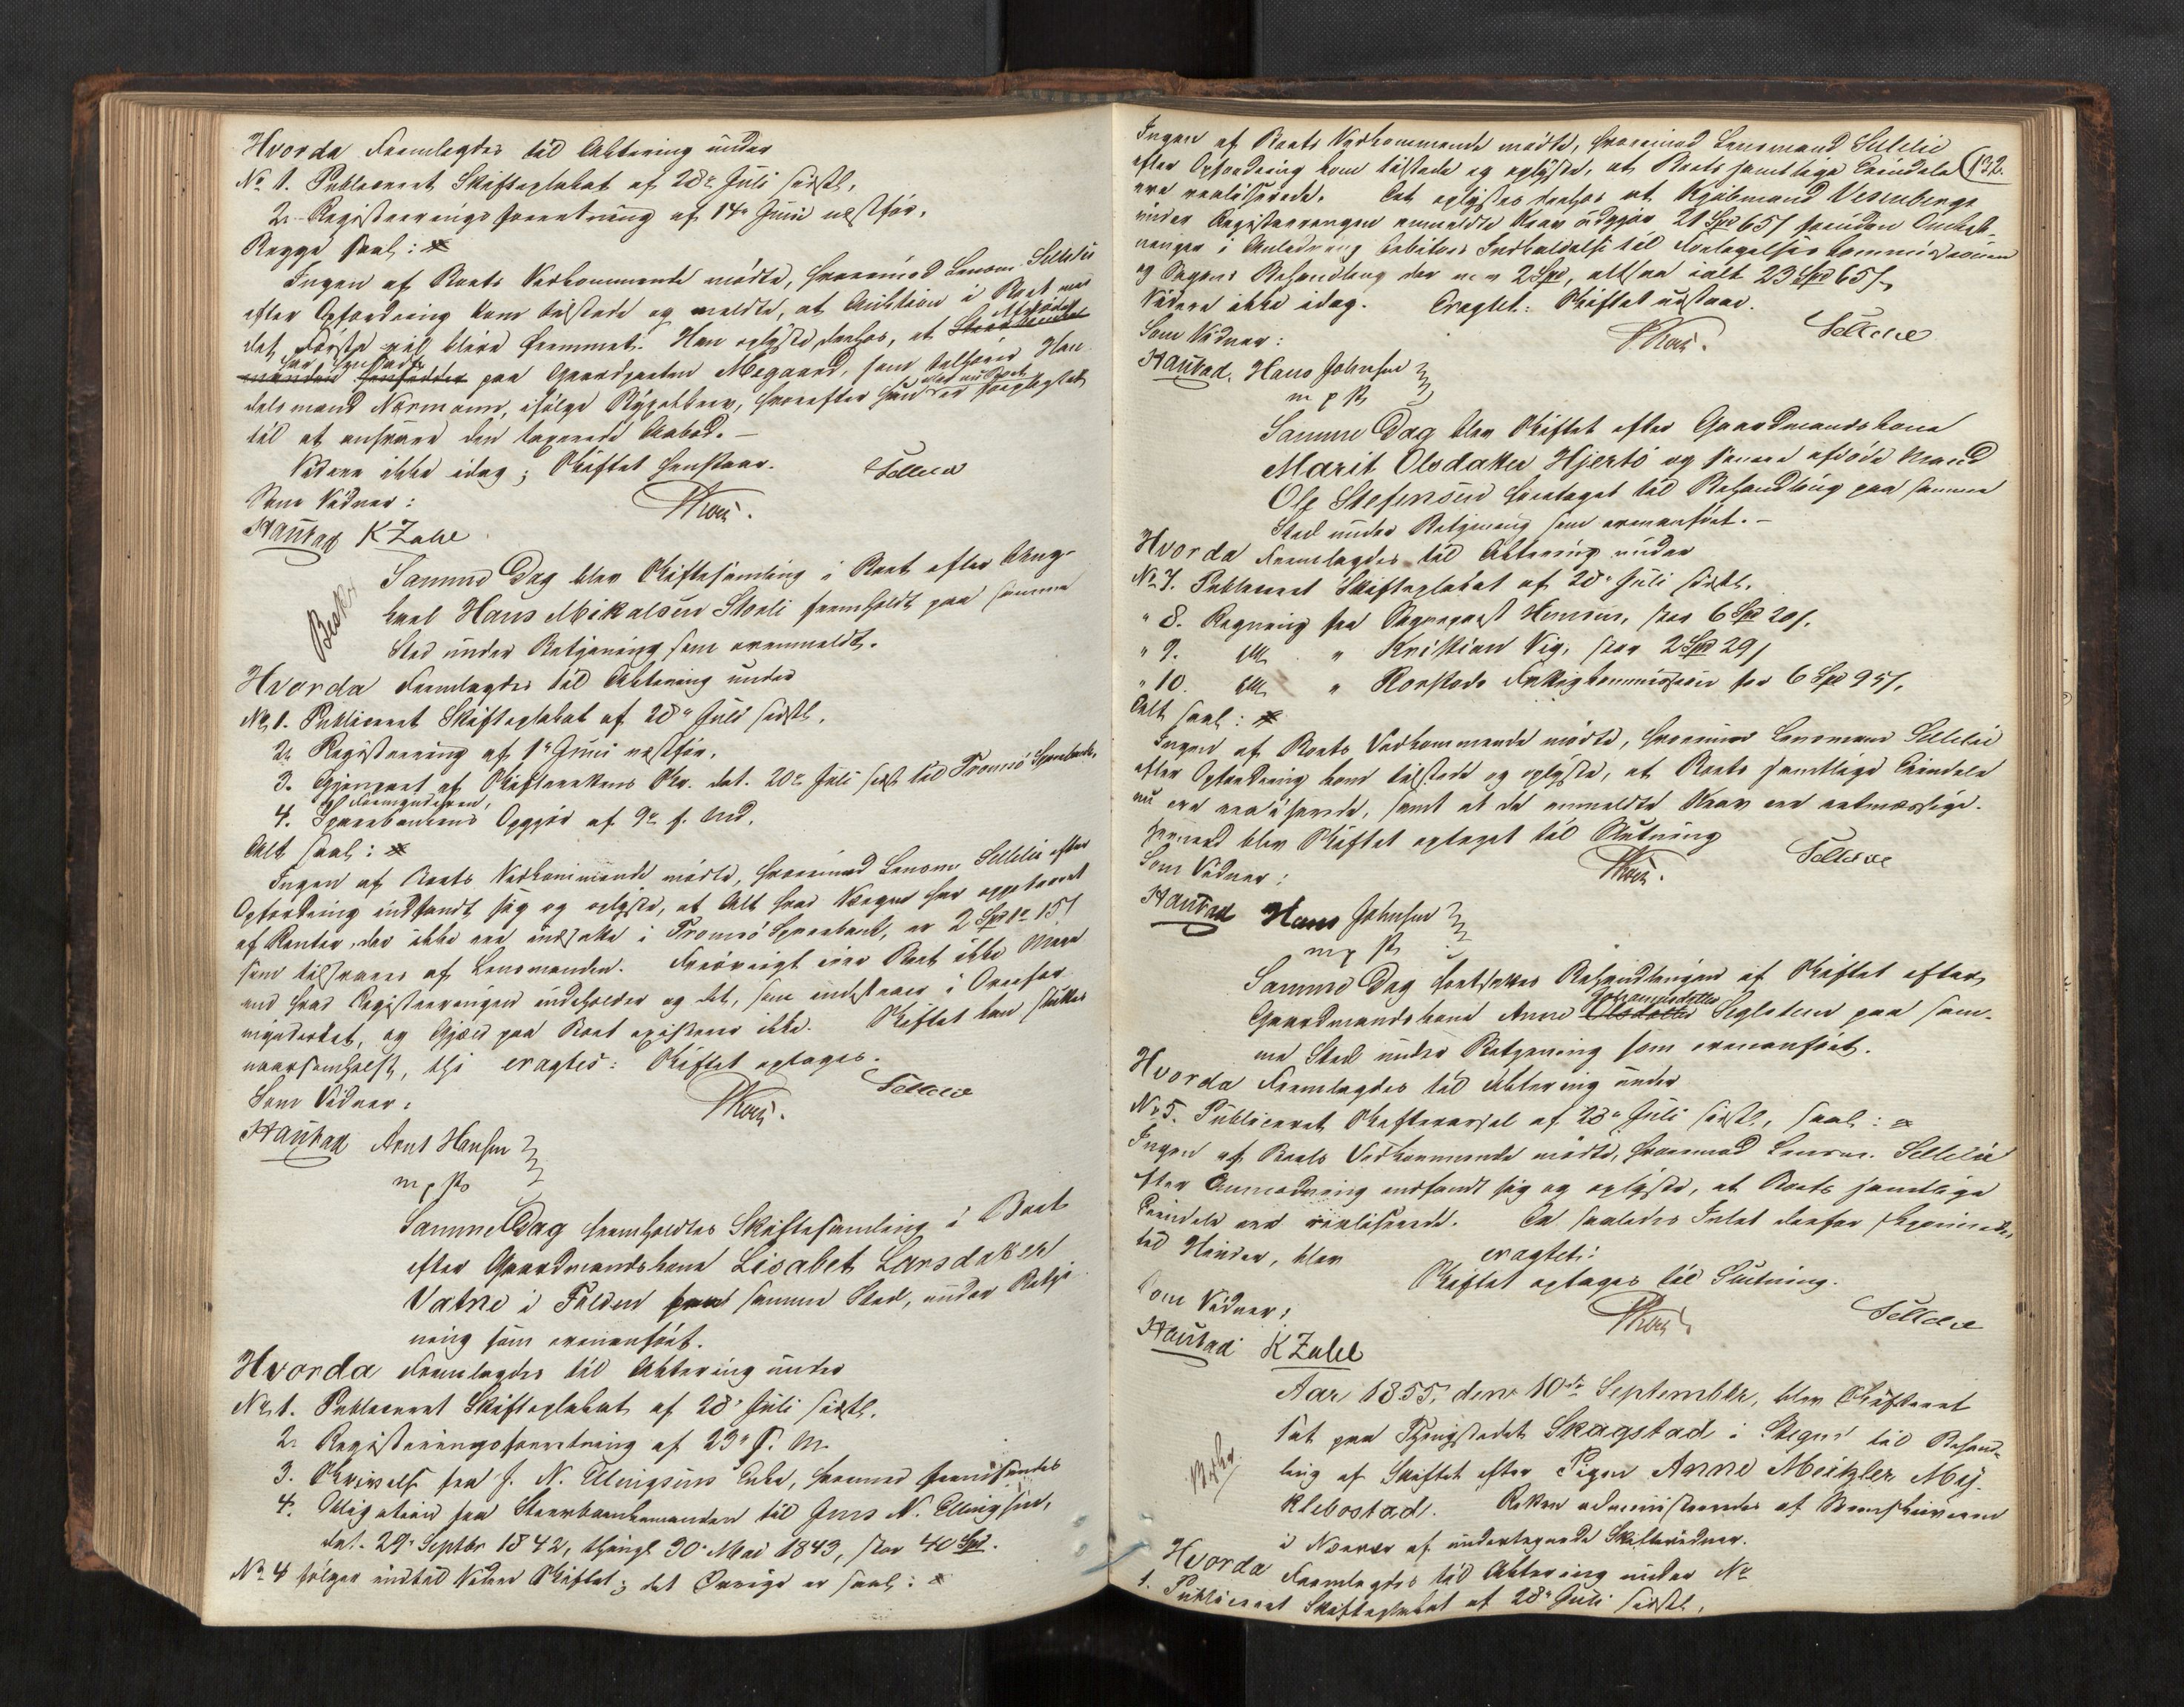 Hvorda Fremlagdes til Aktering under
No 1. Publiceret Skifteplakat af 28de Juli sidstl.
2. Registreringsforretning af 14de Juni næstfør.
Begge saal:
Ingen af Boets Vedkommende mødte, hvorimod Lensm. Sellelie
efter Opfordring kom tilstede og meldte, at Auktion i Boet med
det første vil blive fremmet. Han oplyste derhos, at
paa Gaardparten Megaard, som tilhører Han-
delsmand Normann, ifølge Bygselbrev, hvorefter han er forpligtet
til at ansvare den taxerede Aabod. —
Videre ikke idag; Skiftet henstaar.
Som Vidner: Sellelie
Haukad K Zahl
Samme Dag blev Skiftesamling i Boet efter Ung-
karl Hans Mikalsen Storli fremholdt paa samme
Sted under Betjening som ovenmeldt.
Hvorda Fremlagdes til Aktering under
No 1. Publiceret Skifteplakat af 28de Juli sidstl.
2. Registrering af 1de Juni næstfør.
3. Gjenpart af Skifterettens Skr. dat. 20de Juli sidstl. til Tromsø Sparebank.
4. Sparebankens Opgjør af 9de f. Md.
Alt saal:
Ingen af Boets Vedkommende mødte, hvorimod Lensm. Sellelie efter
Opfordring indfandt sig og oplyste, at Alt hvad Værgen har oppebaaret
af Renter, der ikke ere indsatte i Tromsø Sparebank, er 2 Spd 15 s
som tilsvares af Lensmanden. Forøvrigt eier Boet ikke Mere
end hvad Registreringen indeholder og det, som indestaaer i Overfor-
mynderiet, og Gjæld paa Boet existerer ikke. Skiftet kan sluttes
naarsomhelst, thi eragtes: Skiftet optages.
Som Vidner: Sellelie
Haukad Arnt Hansen
m p P
Samme Dag fremholdtes Skiftesamling i Boet
efter Gaardmandskone Lisabet Larsdatter
Vatne i Folden paa samme Sted, under Betje-
ning som ovenanført.
Hvorda Fremlagdes til Aktering under
No 1. Publiceret Skifteplakat af 28de Juli sidstl.
2. Registreringsforretning af 23de f. M.
3. Skrivelse fra J. N. Ellingsens Enke, hvormed fremsendes
4. Obligation fra Stervboenkemanden til Jens N. Ellingsen,
dat. 29de Septbr 1842, thingl. 30de Mai 1843, stor 40 Spd.
No 4 følger indtil Videre Skiftet; det Øvrige er saal:
Ingen af Boets Vedkommende mødte, hvorimod Lensmand Sellelie
efter Opfordring kom tilstede og oplyste, at Boets samtlige Eiendele 132.
ere realiserede. Det oplystes derhos at Kjøbmand Vesenbergs
under Registreringen anmeldte Krav udgjør 21 Spd 65 s foruden Omkost-
ninger i Anledning Debitors Indkaldelse til Forligelseskommissionen
og Sagens Behandling der med 2 Spd, altsaa ialt 23 Spd 65 s
Videre ikke idag. Eragtet: Skiftet udstaar.
Som Vidner: Sellelie
Haukad. Hans Johnsen
m p P
Samme Dag blev Skiftet efter Gaardmandskone
Marit Olsdatter Hjertø og senere afdøde Mand
Ole Stefensen foretaget til Behandling paa samme
Sted under Betjening som ovenanført. —
Hvorda Fremlagdes til Aktering under
No 7. Publiceret Skifteplakat af 28de Juli sidstl.
" 8. Regning fra Sogneprest Hansen, stor 6 Spd 20 s.
" 9. " Kristian Vig, stor 2 Spd 29 s
" 10. " Rorstads Fattigkommission stor 6 Spd 95 s.
Alt saal:
Ingen af Boets Vedkommende mødte, hvorimod Lensmand Sellelie
efter Opfordring kom tilstede og oplyste, at Boets samtlige Eiendele
nu ere realiserede, samt at de anmeldte Krav ere retmæssige.
Hermed blev Skiftet optaget til Slutning
Som Vidner: Sellelie
Haukad Hans Johnsen
m p P
Samme Dag fortsattes Behandlingen af Skiftet efter
Gaardmandskone Anne Olsdatter Johannesdatter Seglsteen paa sam-
me Sted under Betjening som ovenanført.
Hvorda Fremlagdes til Aktering under
No 5. Publiceret Skiftevarsel af 28de Juli sidstl., saal:
Ingen af Boets Vedkommende mødte, hvorimod Lensm. Sellelie
efter Anmodning indfandt sig og oplyste, at Boets samtlige
Eiendele ere realiserede. Da saaledes Intet derfor
til Hinder, blev eragtet:
Skiftet optages til Slutning.
Som Vidner: Sellelie
Haukad K Zahl
Aar 1855, den 10de September, blev Skifteret
sat paa Thingstedet Skagstad i Stegen til Behand-
ling af Skiftet efter Pigen Anne Meitzler Myj-
klebostad. Retten administreredes af Sorenskriveren
i Nærvær af undertegnede Skiftevidner.
Hvorda Fremlagdes til Aktering under No
1. Publiceret Skifteplakat af 28de Juli sidstl.